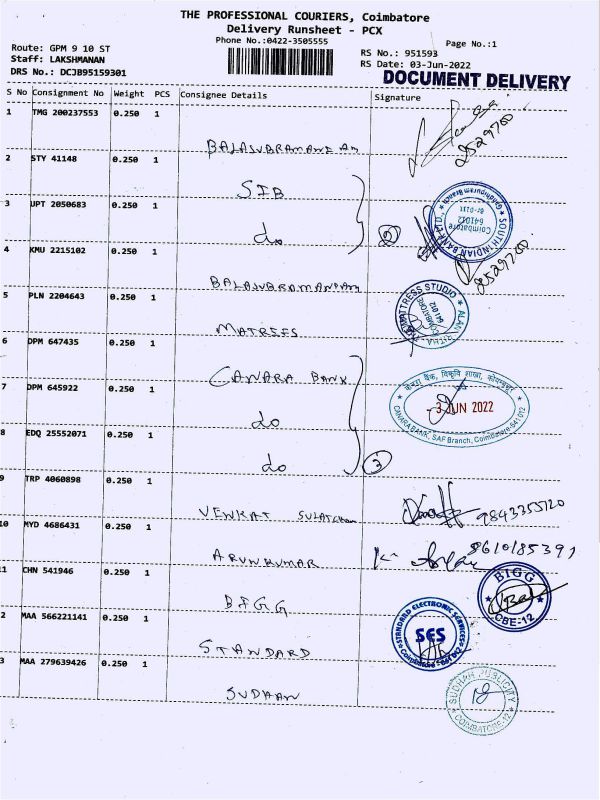 THE PROFESSIONAL COURIERS, Coimbatore
Delivery Runsheet - PCX
Phone No.:0422-3505555
Page No.:1
Route: GPM 9 10 ST
RS No.: 951593
Staff: LAKSHMANAN
RS Date: 03-Jun-2022
DRS No.: DCJB95159301
DOCUMENT DELIVERY
S No Consignment No Weight PCS Consignee Details Signature
1 TMG 200237553 0.250 1
BALASUBRAMANIAN
2529700
2 STY 41148 0.250 1
SIB
3 UPT 2050683 0.250 1
do
2
SOUTH INDIAN BANK LTD.,
Gandhipuram Branch
Coimbatore
641012
2529700
4 KMU 2215102 0.250 1
BALASUBRAMANIAN
5 PLN 2204643 0.250 1
MATRESS
MATTRESS STUDIO
COIMBATORE
641 012
6 DPM 647435 0.250 1
CANARA BANK
केनरा बैंक,
CANARA BANK, SAF Branch, Coimbatore-641 012
- 3 JUN 2022
7 DPM 645922 0.250 1
do
8 EDQ 25552071 0.250 1
do
3
9 TRP 4060898 0.250 1
VENKAT
9843355120
10 MYD 4686431 0.250 1
ARUNKUMAR
8610185391
11 CHN 541946 0.250 1
BIGG
BIGG
CBE-12
2 MAA 566221141 0.250 1
STANDARD
STANDARD ELECTRONIC SERVICES
SES
Coimbatore - 641 012
3 MAA 279639426 0.250 1
SUDHAN
PUBLICITY
COIMBATORE-12